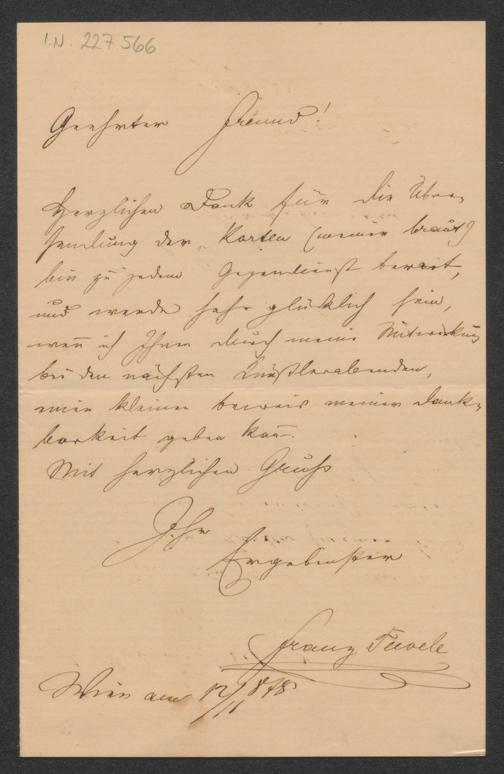 I.N. 227.566
Geehrter Freund!
Herzlichen Dank für die Über-
sendung der Karten (meiner braut)
bin zu jedem Gegendienst bereit,
und werde sehr glücklich sein,
wenn ich Ihnen durch meine Mitwirkung
bei den nächsten Künstlerabenden,
einen kleinen beweis meiner Dank-
barkeit geben kan̄.
Mit herzlichen Gruß
Ihr
Ergebenster
Franz
Wien am 12/11